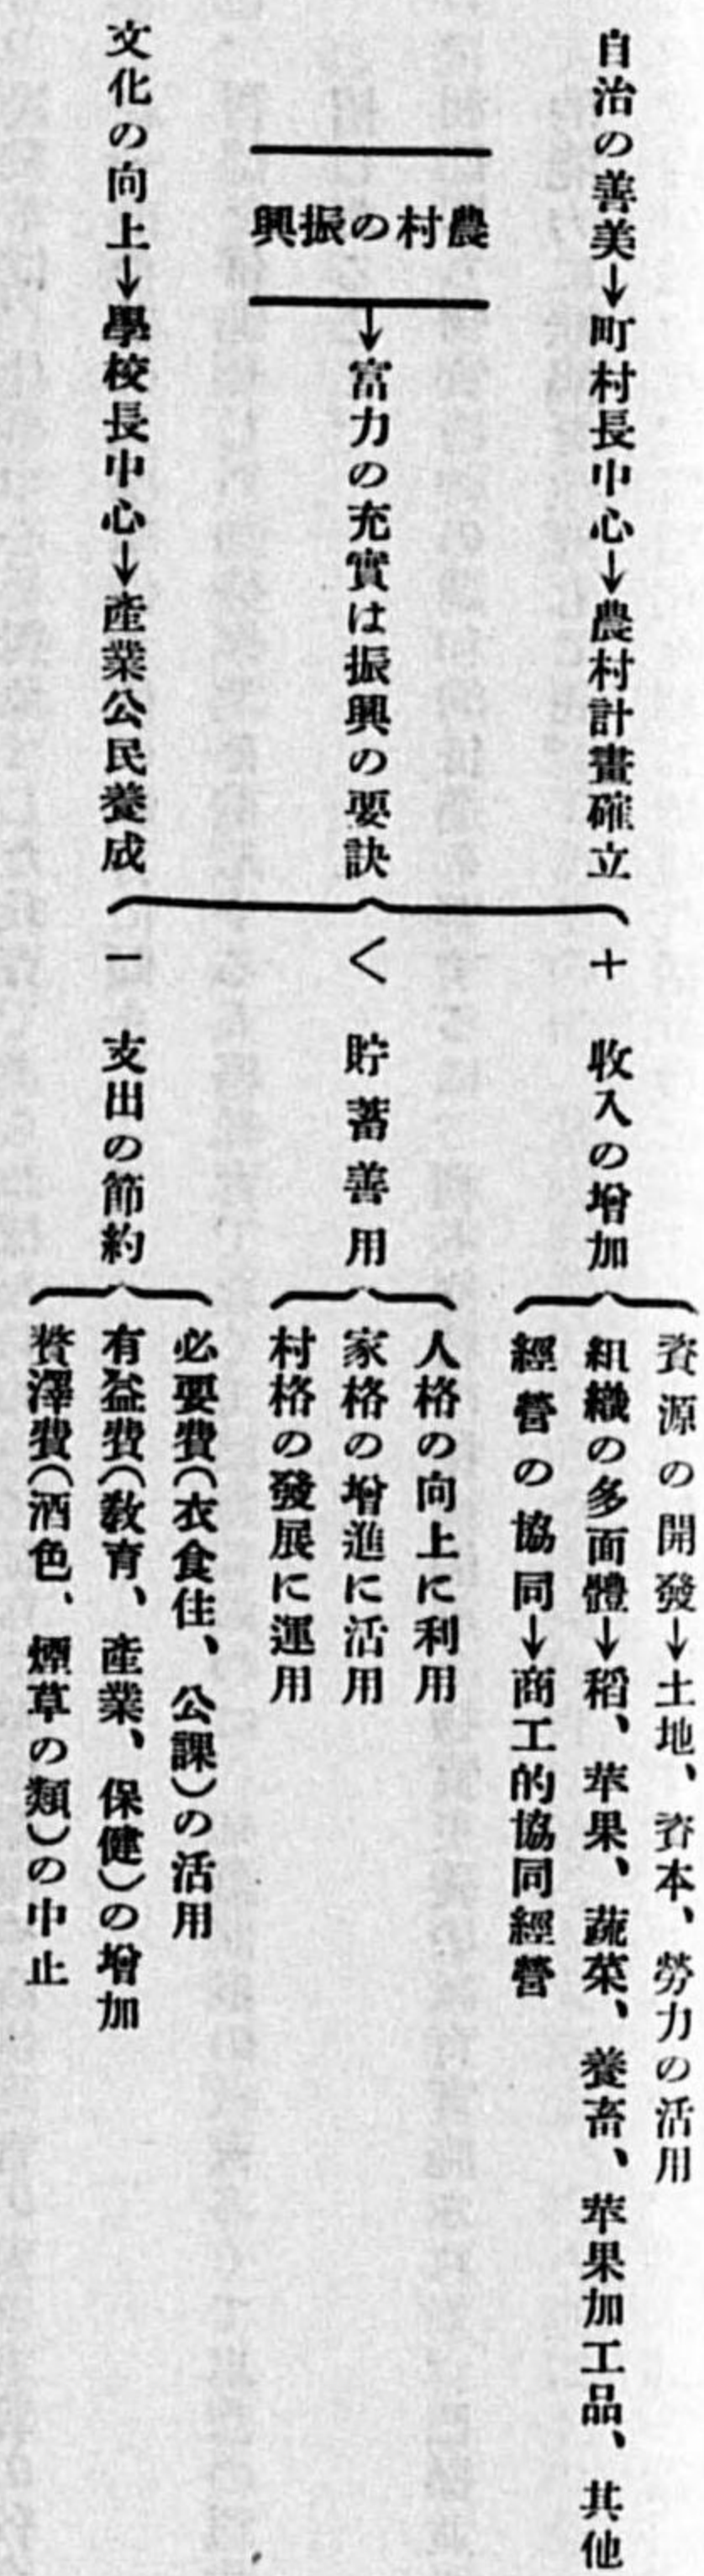 自治の善美→町村長中心→農村計畫確立
農村の振興
→富力の充實は振興の要訣
文化の向上→學校長中心→產業公民養成
＋ 收入の增加
資源の開發→土地、資本、勞力の活用
組織の多面體→稻、苹果、蔬菜、養畜、苹果加工品、其他
經營の協同→商工的協同經營
＜ 貯蓄善用
人格の向上に利用
家格の增進に活用
村格の發展に運用
－ 支出の節約
必要費（衣食住、公課）の活用
有益費（敎育、產業、保健）の增加
贅澤費（酒色、煙草の類）の中止